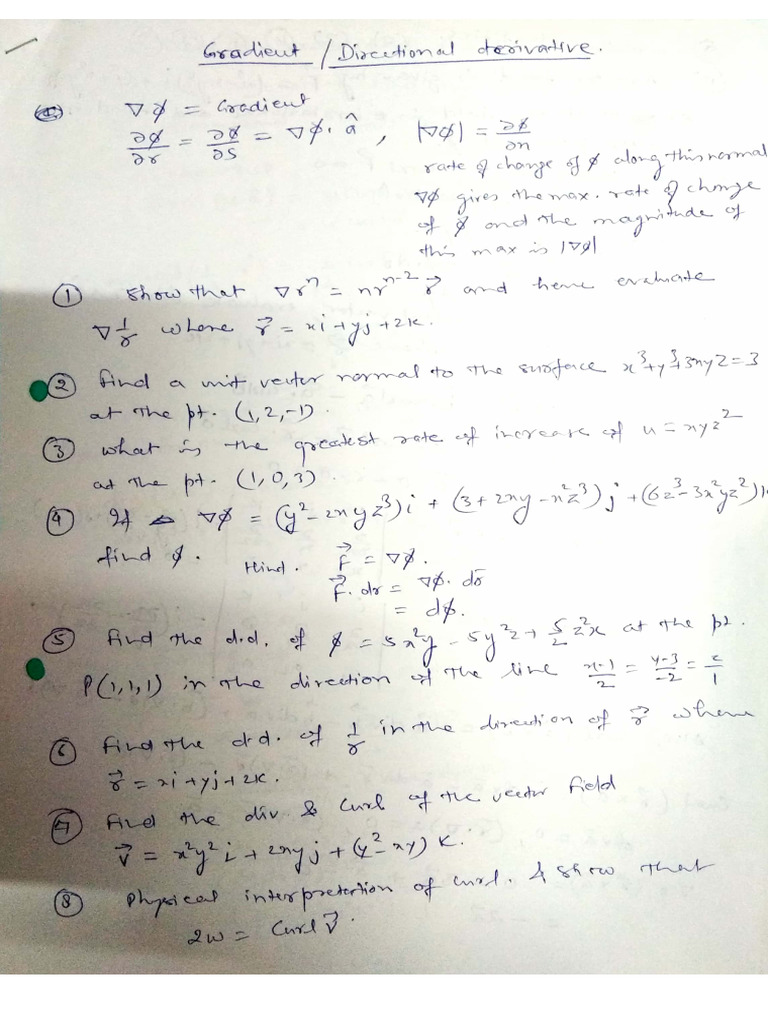 Gradient / Directional derivative.
∇φ = Gradient
∂φ/∂r = ∂φ/∂s = ∇φ · â , |∇φ| = ∂φ/∂n
rate of change of φ along this normal
∇φ gives the max. rate of change
of φ and the magnitude of
this max is |∇φ|
① Show that ∇rⁿ = nrⁿ⁻² r⃗ and hence evaluate
∇ 1/r where r⃗ = xi + yj + zk.
② find a unit vector normal to the surface x³+y³+3xyz=3
at the pt. (1,2,-1).
③ what is the greatest rate of increase of u = xyz²
at the pt. (1,0,3).
④ If ∇φ = (y² - 2xyz³)i + (3 + 2xy - x²z³)j + (6z³ - 3x²yz²)k
find φ. Hind. F⃗ = ∇φ.
F⃗. dr = ∇φ. dr̄
= dφ.
⑤ find the d.d. of φ = 5x²y - 5y²z + 5/2 z²x at the pt.
P(1,1,1) in the direction of the line x-1/2 = y-3/-2 = z/1
⑥ find the d.d. of 1/r in the direction of r⃗ where
r⃗ = xi + yj + zk.
⑦ find the div & curl of the vector field
v⃗ = x²y² i + 2xyj + (y² - xy) k.
⑧ Physical interpretation of curl. & show that
2w = curl v⃗.